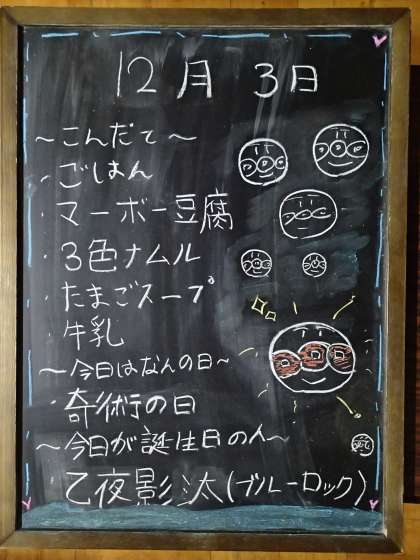 12月 3日
～こんだて～
・ごはん
・マーボー豆腐
・3色ナムル
・たまごスープ
・牛乳
～今日はなんの日～
・奇術の日
～今日が誕生日の人～
乙夜影汰(ブルーロック)